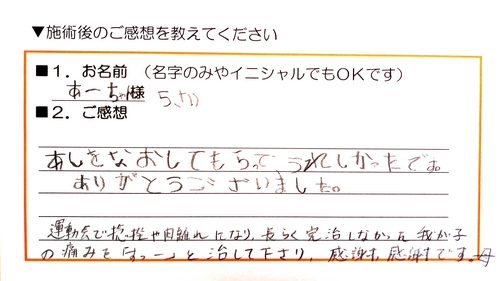 ▼施術後のご感想を教えてください
■1．お名前 （名字のみやイニシャルでもOKです）
あーちゃん様 5さい
■2．ご感想
あしをなおしてもらって うれしかったです。
ありがとうございました。
運動会で捻挫や肉離れになり、長らく完治しなかった 我が子
の痛みを「すっーっ」と治して下さり、感謝、感謝です。母